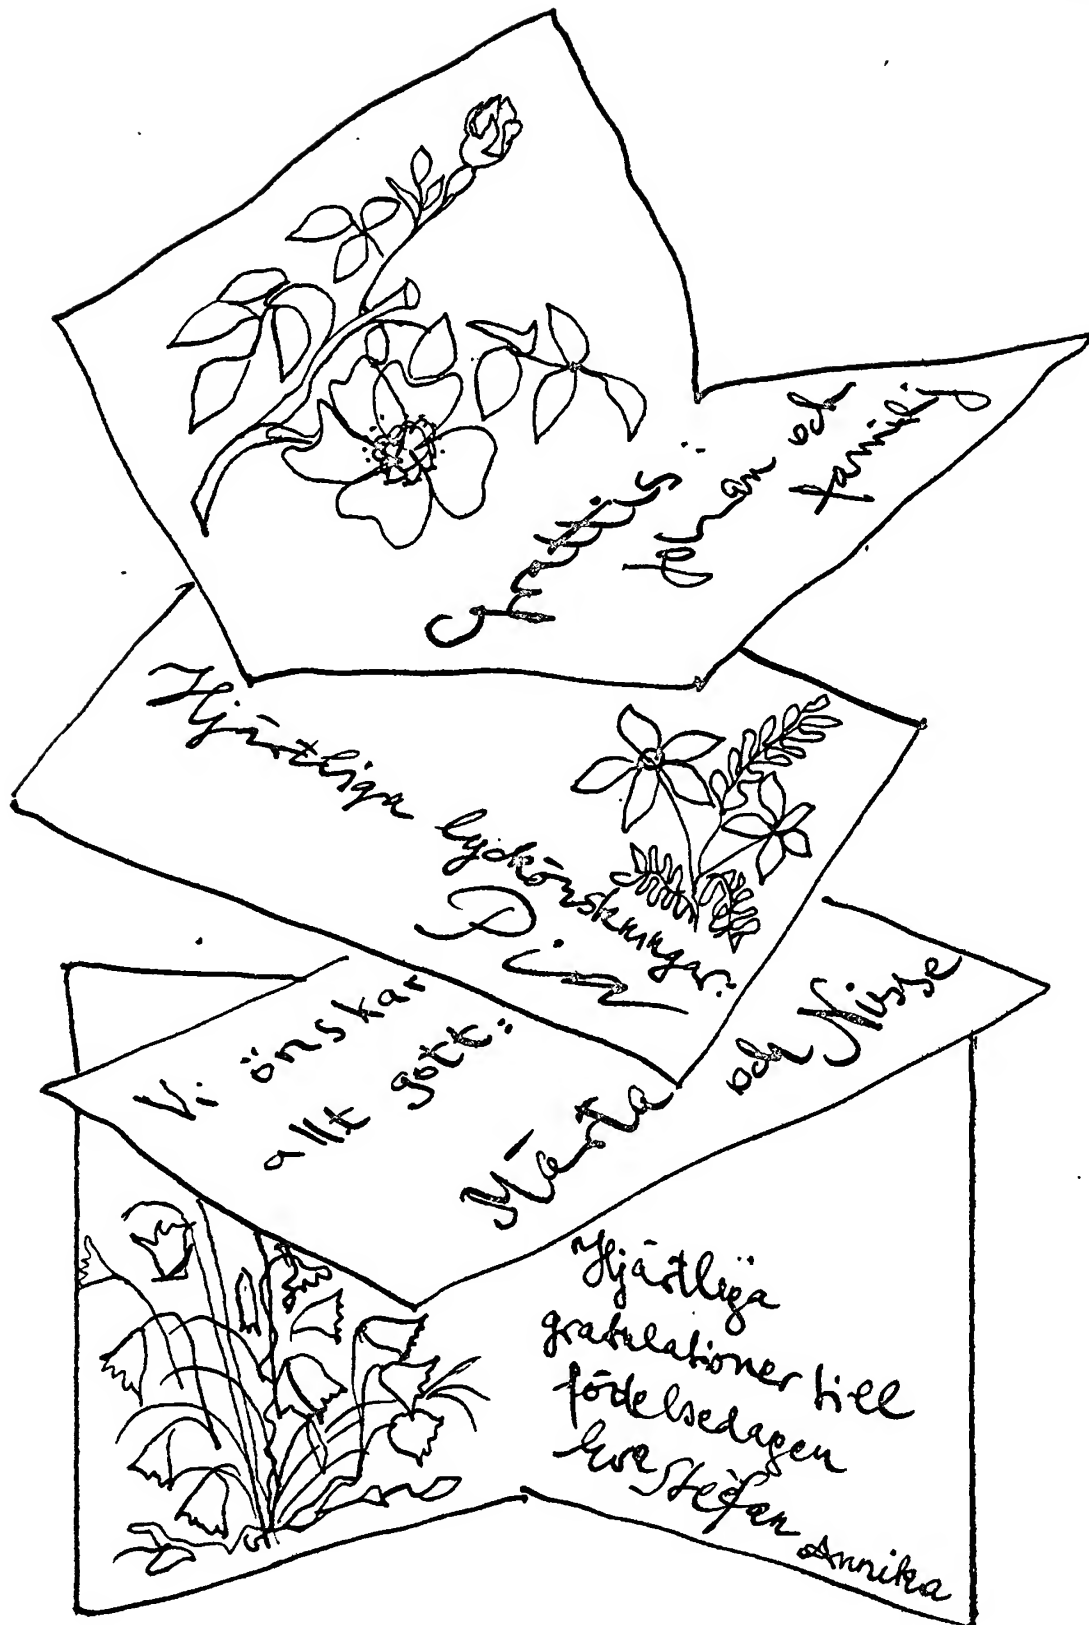 Grattis
och
familj
Hjärtliga lyckönskningar.
Pia
Vi önskar
allt gott:
Märta och Nisse
Hjärtliga
gratulationer till
födelsedagen
Eva Stefan Annika